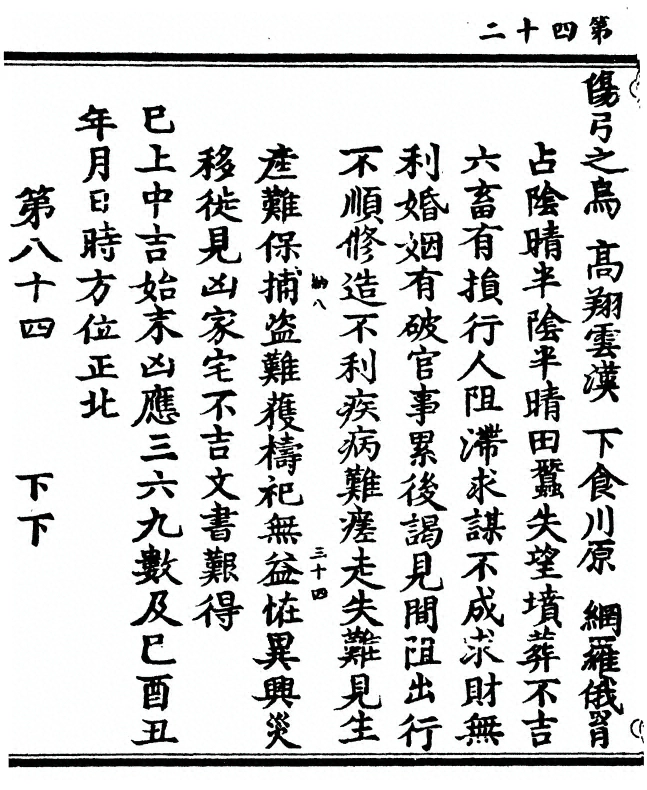 第四十二
傷弓之鳥　高翔雲漢　下食川原　網羅俄罥
占陰晴半陰半晴田蠶失望墳葬不吉
六畜有損行人阻滯求謀不成求財無
利婚姻有破官事累後謁見間阻出行
不順修造不利疾病難瘥走失難見生
納八
三十四
產難保捕盜難獲禱祀無益恠異興災
移徙見凶家宅不吉文書艱得
巳上中吉始末凶應三六九數及巳酉丑
年月日時方位正北
第八十四　下下